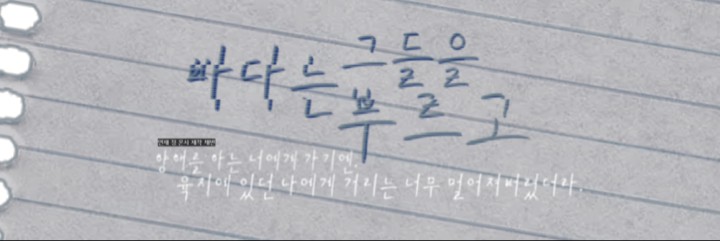 바다는 그들을
부르고
앞에 있는 너에게 가기엔.
육지에 있던 나에게 거리는 너무 멀어져버렸더라.